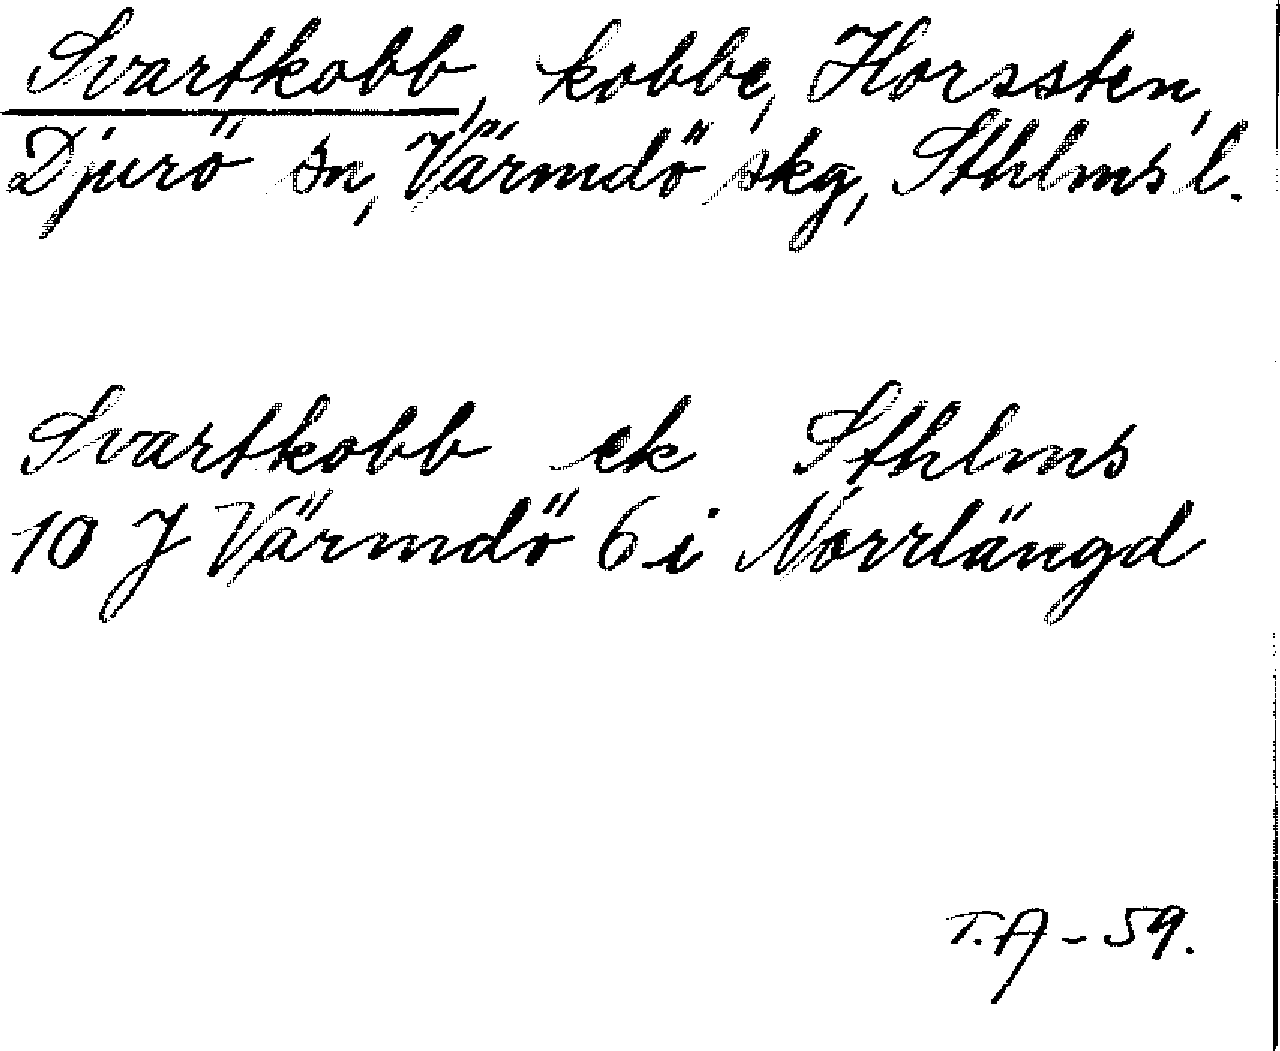 Svartkobb, kobbe, Horssten,
Djurö sn, Värmdö skg, Sthlms l.
Svartkobb ek Sthlms
10 J Värmdö 6 i Norrlängd
T.A - 59.